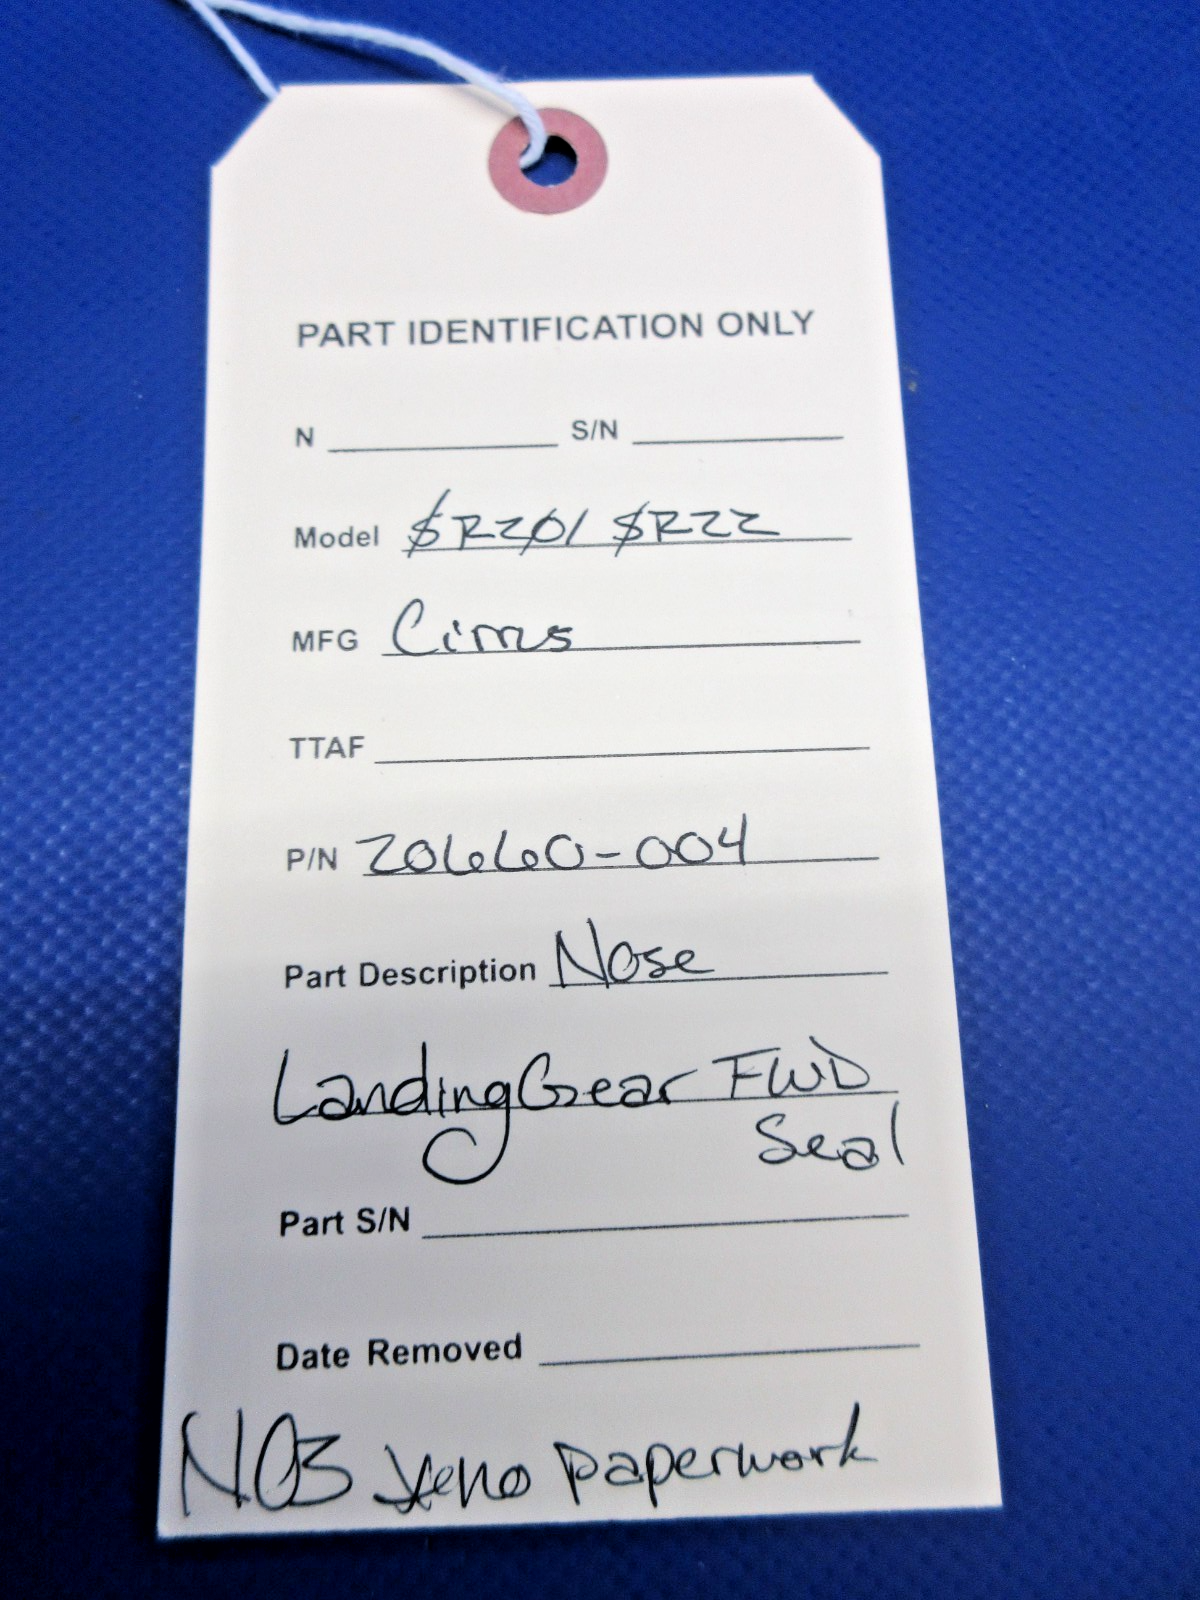 PART IDENTIFICATION ONLY
N S/N
Model SR20/ SR22
MFG Cirrus
TTAF
P/N 20660-004
Part Description Nose
Landing Gear FWD
Seal
Part S/N
Date Removed
NOS paperwork